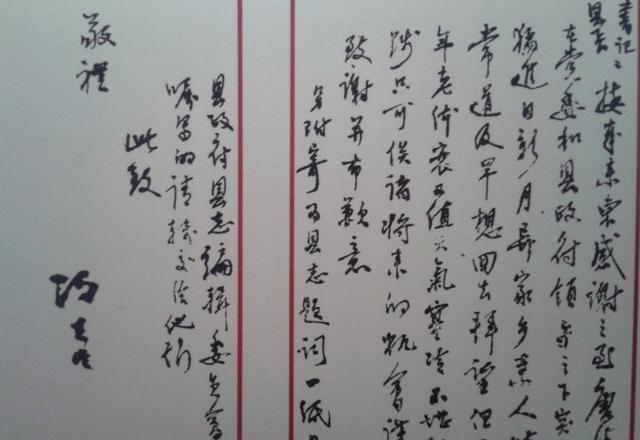 书记
县长：接来柬荣感谢之至
在党委和县政府领导之下突
猛进日新月异家乡亲人
常道及早想回去拜望但
年老体衰又值天气寒冷不堪
跋涉只可俟诸将来的机会
致谢并布歉意
另附寄为县志题词一纸
县政府县志编辑委员会
嘱写的请转交给他们
此致
敬礼